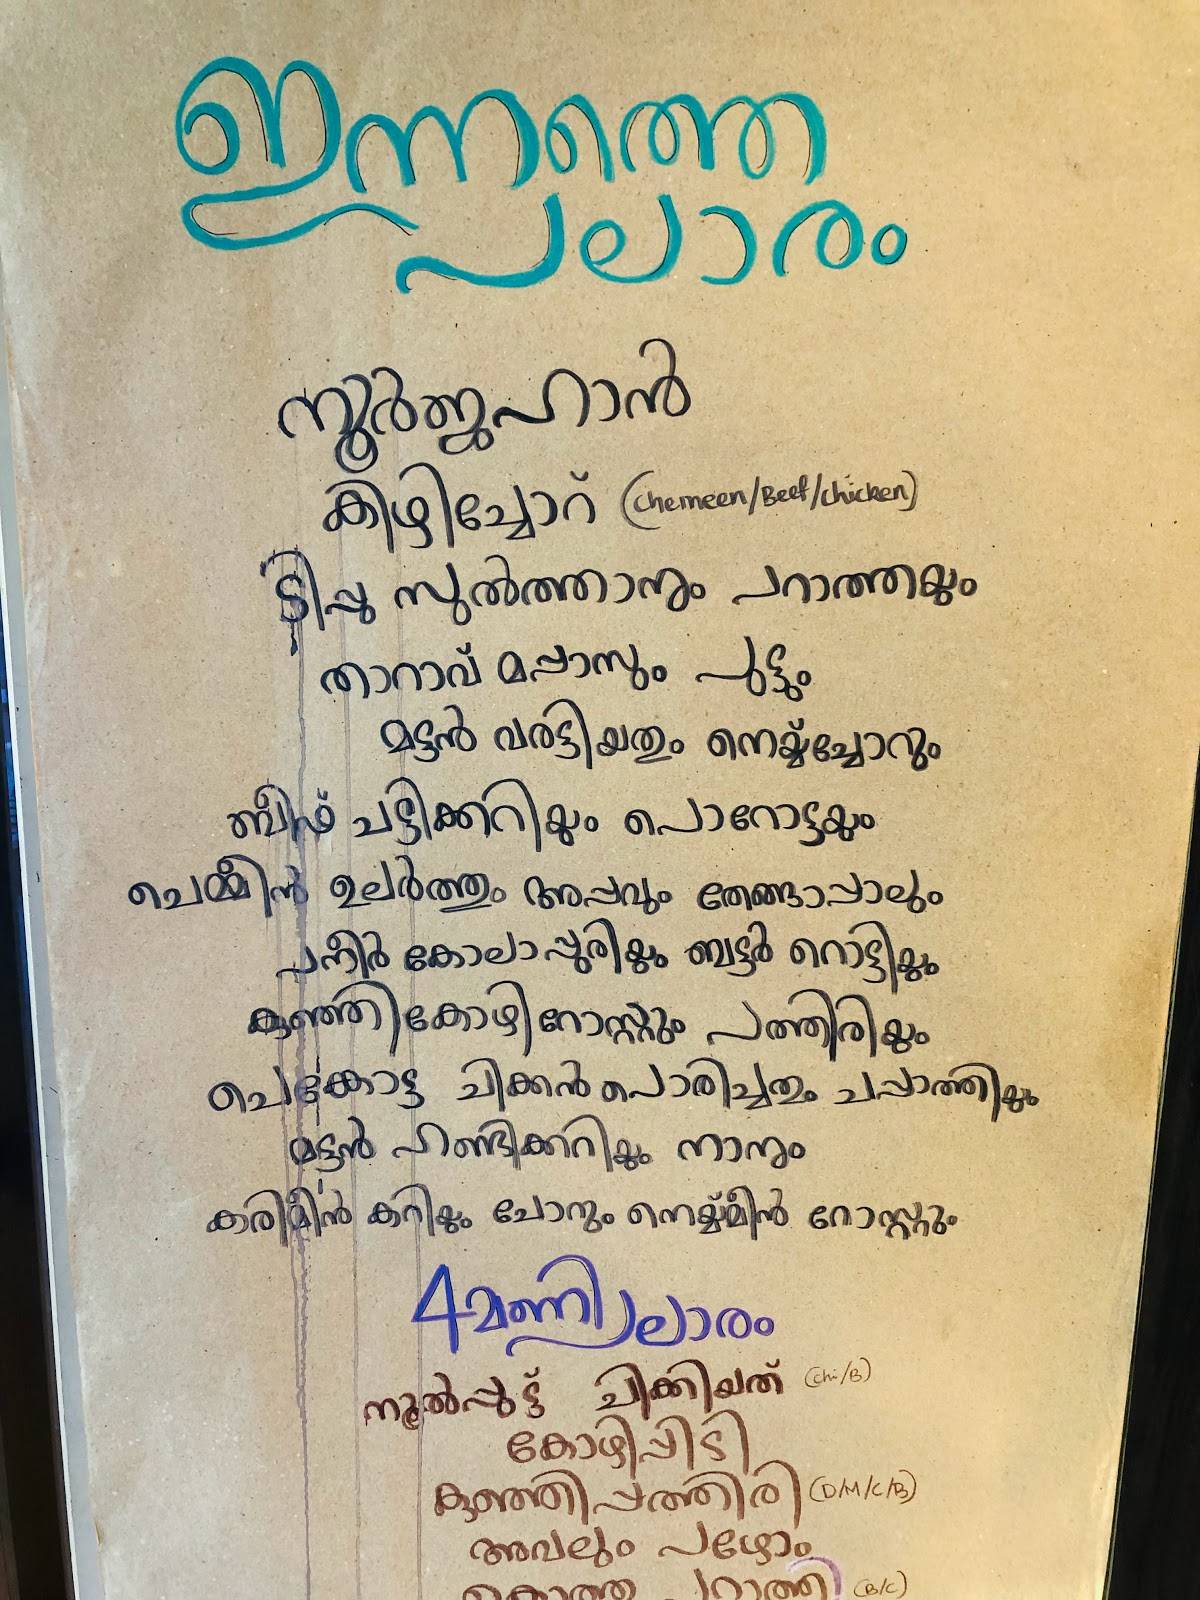 ഇന്നത്തെ
പലാരം
നൂർജഹാൻ
കിഴിച്ചോറ് (Chemeen/Beef/chicken)
ടിപ്പു സുൽത്താനും പറാത്തയും
താറാവ് മപ്പാസും പുട്ടും
മട്ടൻ വരട്ടിയതും നെയ്ച്ചോറും
ബീഫ് ചട്ടിക്കറിയും പൊറോട്ടയും
ചെമ്മീൻ ഉലർത്തും അപ്പവും തേങ്ങാപ്പാലും
പനീർ കോലാപ്പുരിയും ബട്ടർ റൊട്ടിയും
കുഞ്ഞികോഴിറോസ്റ്റും പത്തിരിയും
ചെക്കോട്ട ചിക്കൻ പൊരിച്ചതും ചപ്പാത്തിയും
മട്ടൻ ഹണ്ടിക്കറിയും നാനും
കരിമീൻ കറിയും ചോറും നെയ്മീൻ റോസ്റ്റും
4മണിപ്പലാരം
നൂൽപ്പുട്ട് ചിക്കിയത് (Chi/B)
കോഴിപ്പിടി
കുഞ്ഞിപ്പത്തിരി (D/M/C/B)
അവലും പഴോം
കൊത്തു പറാത്ത (B/C)